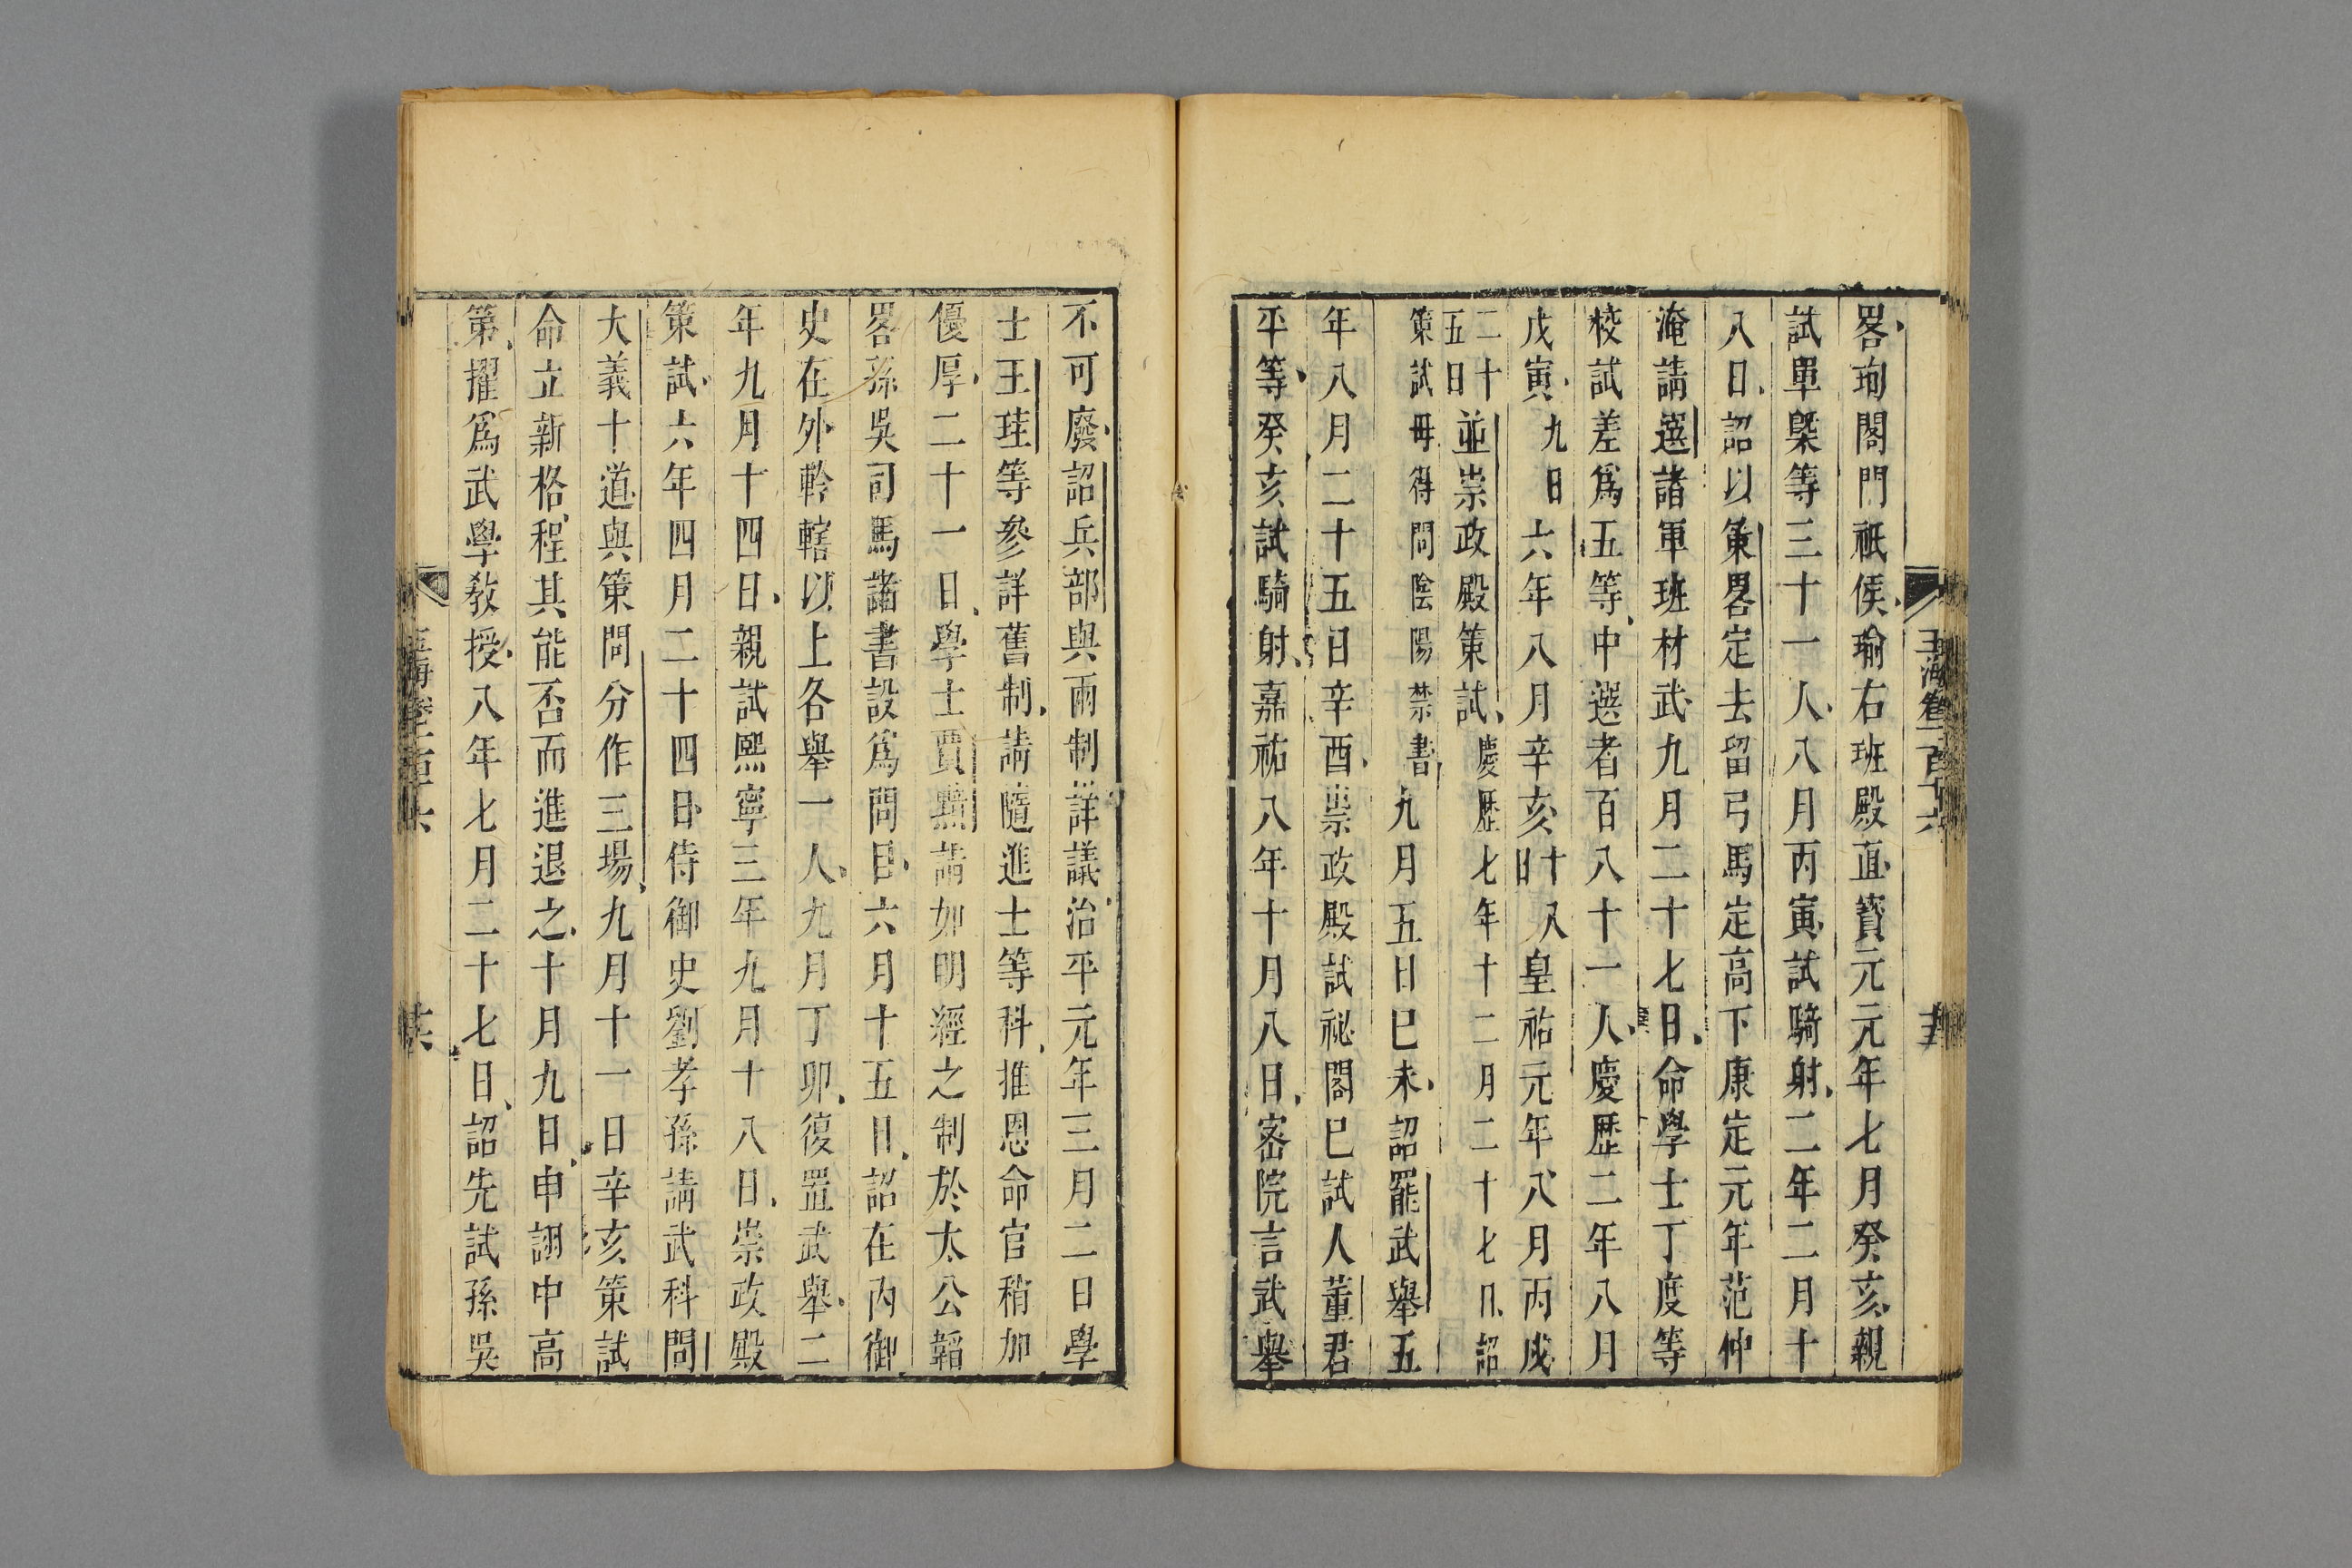 畧珣閤門祇侯瑜右班殿直寳元元年七月癸亥親
試單槩等三十一人八月丙寅試騎射二年二月十
八日詔以策畧定去留弓馬定高下康定元年范仲
淹請選諸軍班材武九月二十七日命學士丁度等
校試差爲五等中選者百八十一人慶歷二年八月
戊寅九日六年八月辛亥十八日皇祐元年八月丙戌
二十五日並崇政殿策試慶歷七年十二月二十七日詔
策試毋得問陰陽禁書九月五日巳未詔罷武舉五
年八月二十五日辛酉崇政殿試祕閣已試人董君
平等癸亥試騎射嘉祐八年十月八日密院言武舉
玉海卷一百十六
不可廢詔兵部與兩制詳議治平元年三月二日學
士王珪等參詳舊制請隨進士等科推恩命官稍加
優厚二十一日學士賈黯請如明經之制於太公韜
畧孫吳司馬諸書設爲問目六月十五日詔在內御
史在外幹轄以上各舉一人九月丁卯復置武舉二
年九月十四日親試熙寧三年九月十八日崇政殿
策試六年四月二十四日侍御史劉孝孫請武科問
大義十道與策問分作三場九月十一日辛亥策試
命立新格程其能否而進退之十月九日申詡中高
第擢爲武學教授八年七月二十七日詔先試孫吳